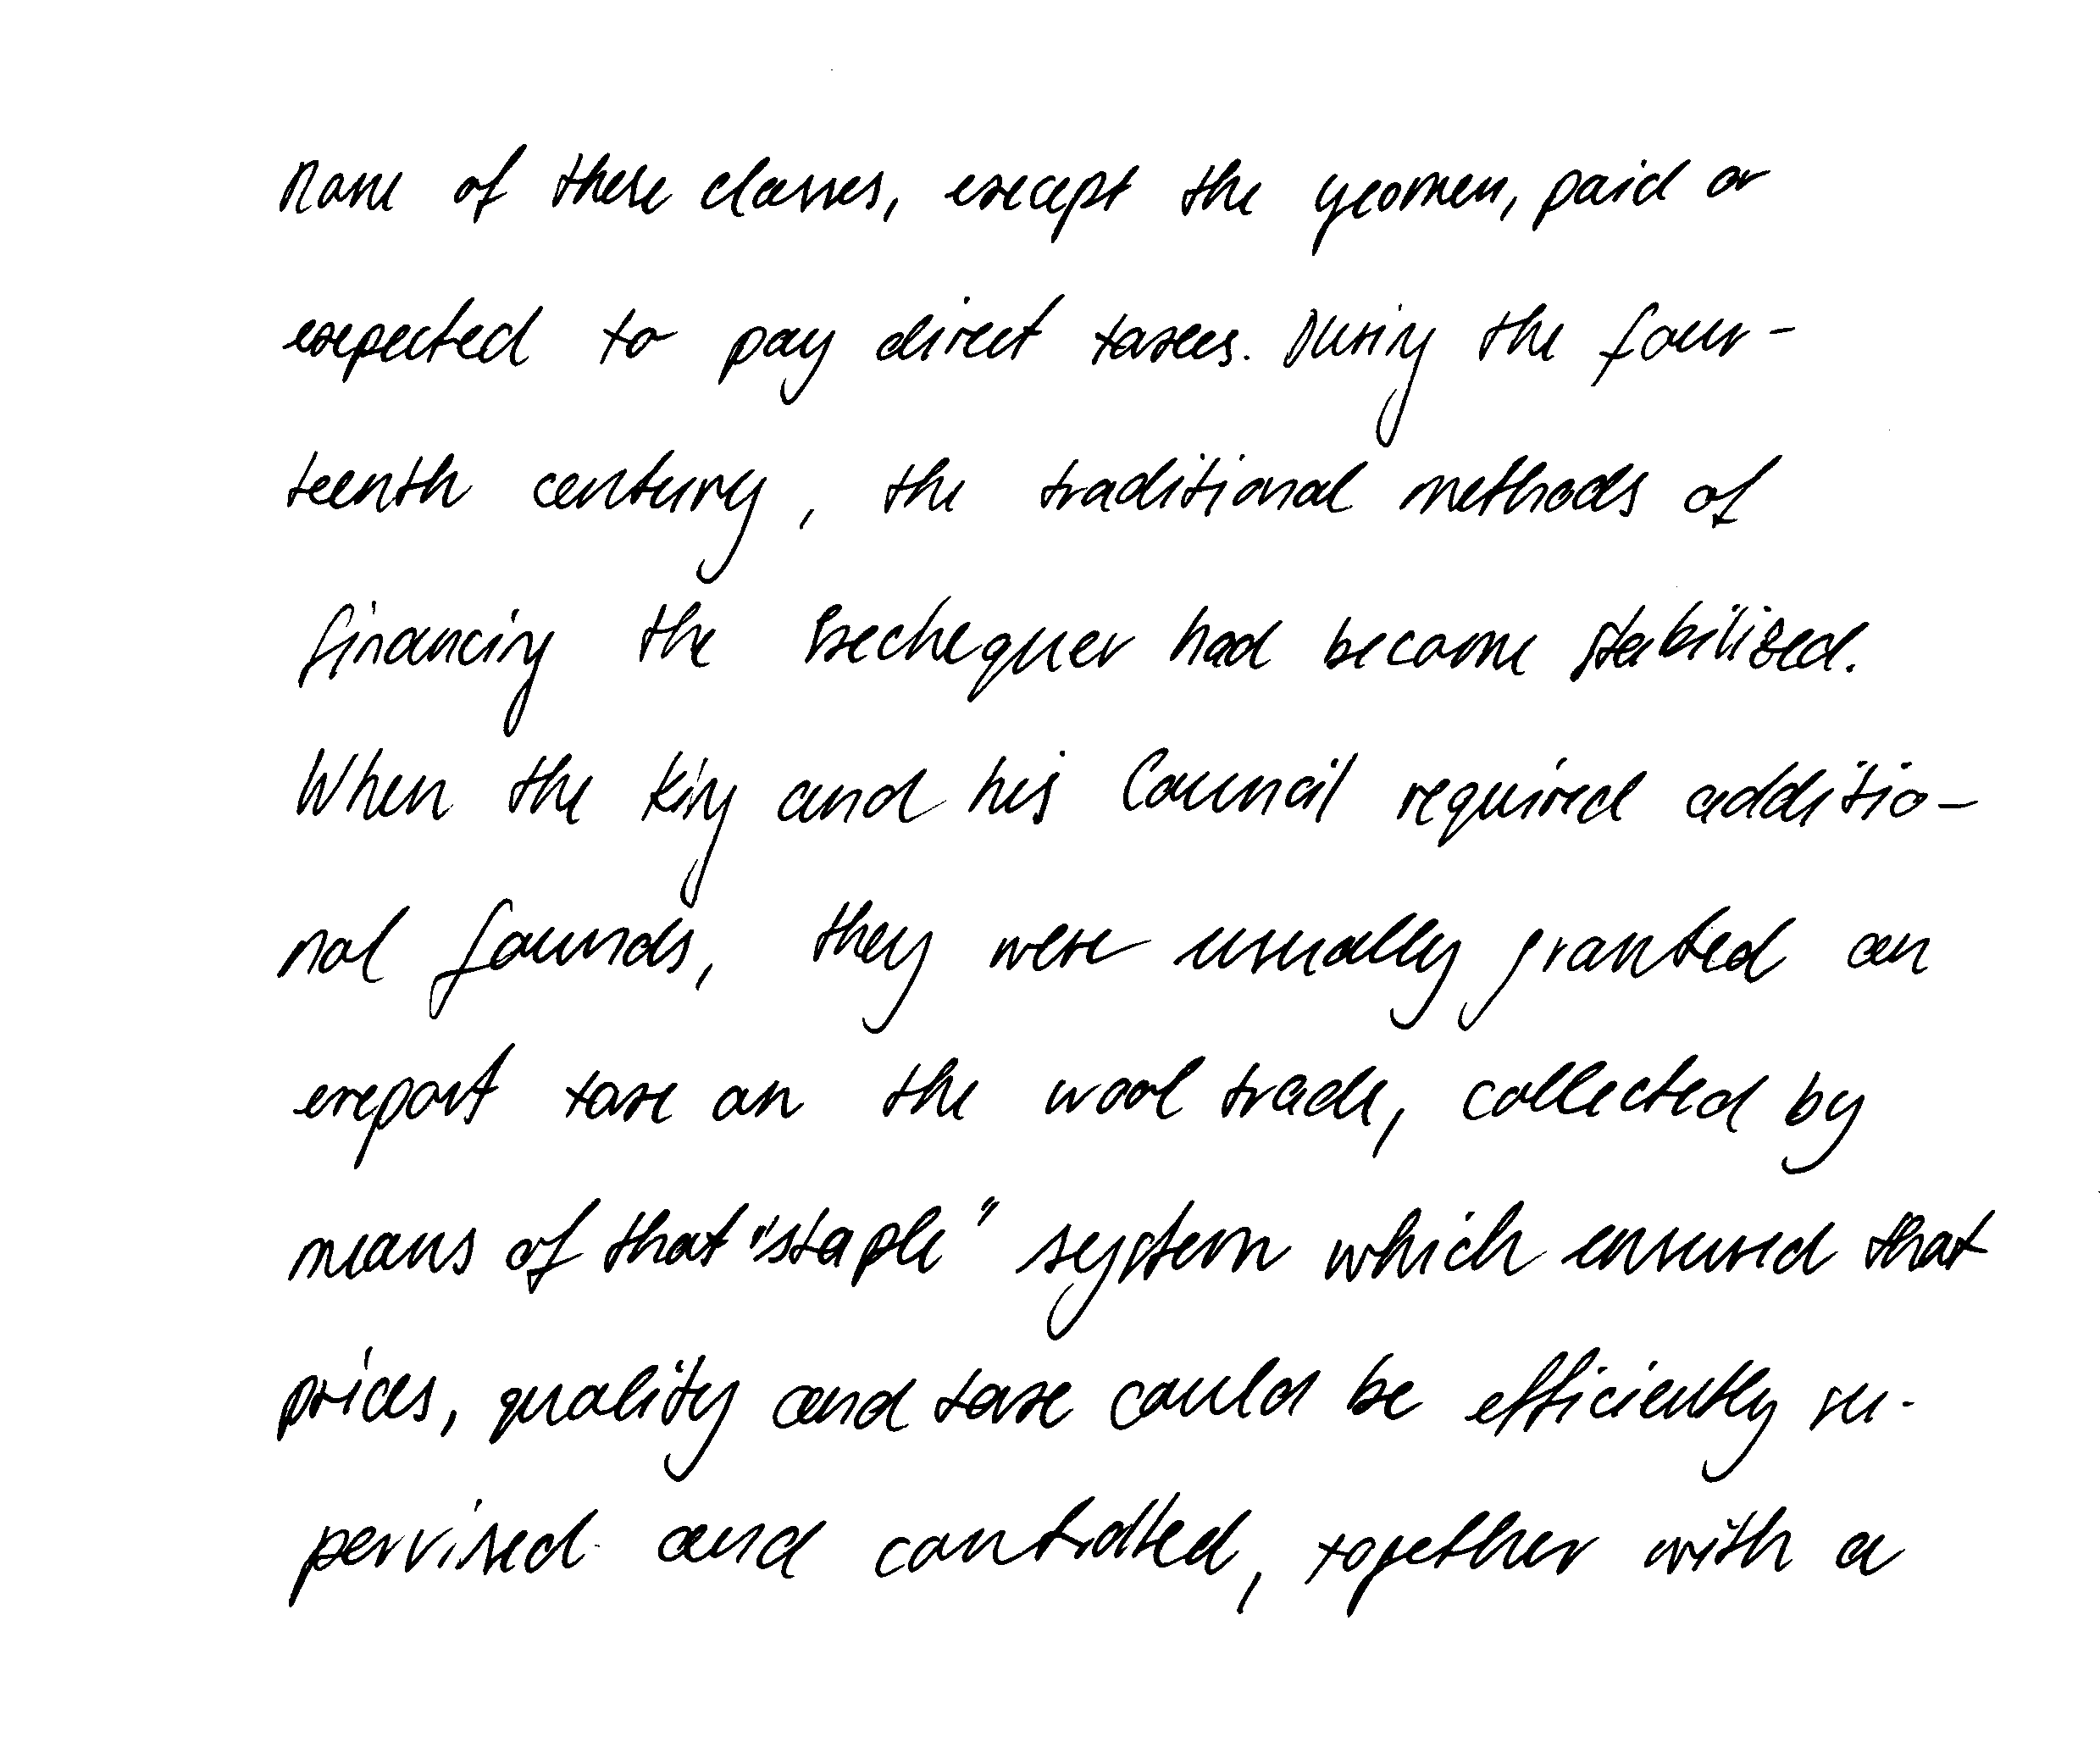 None of these classes, except the yeomen, paid or
expected to pay direct taxes. During the four-
teenth century, the traditional methods of
financing the Exchequer had become stabilised.
When the King and his Council required additio-
nal founds, they were usually granted an
export taxe on the wool trade, collected by
means of that "staple" system which ensured that
prices, quality and taxe could be efficiently su-
pervised and controlled, together with a